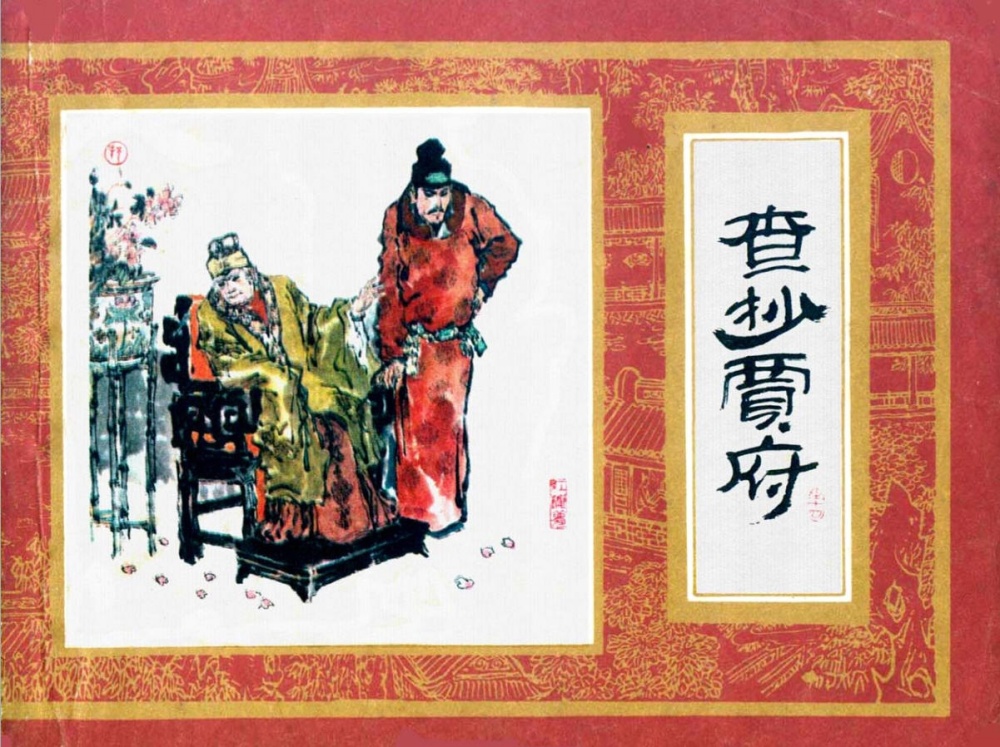 查抄賈府